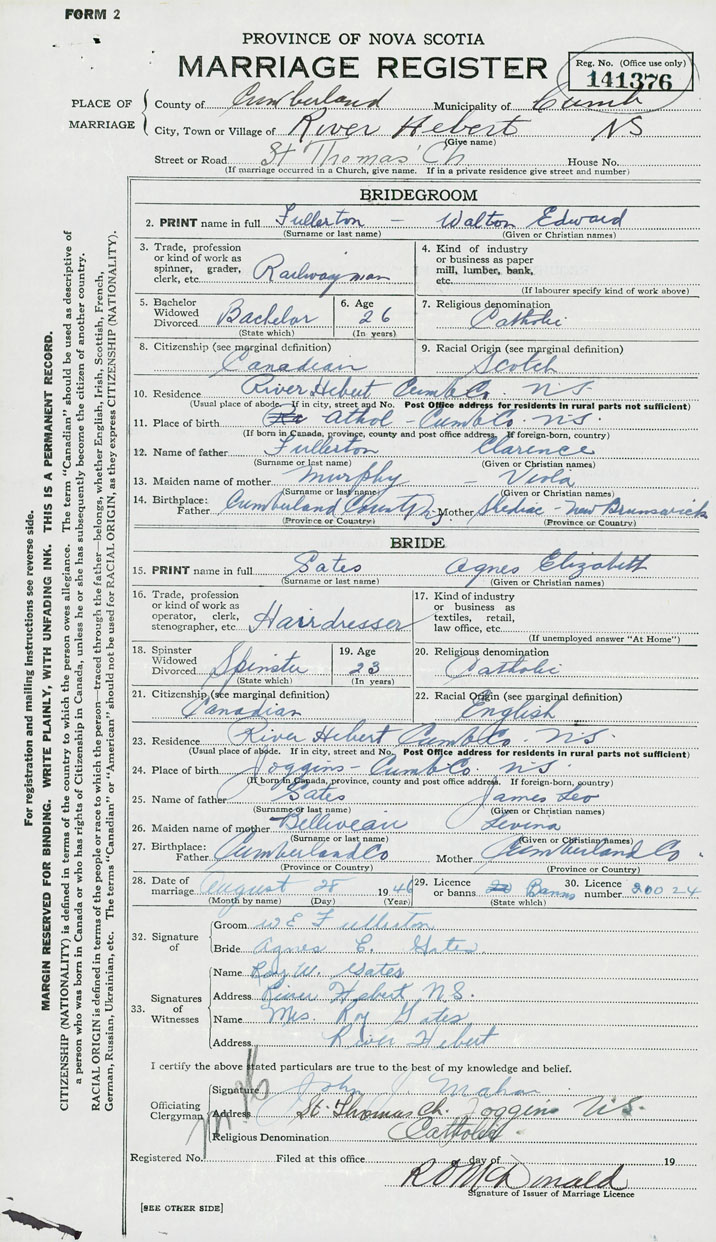 FORM 2
PROVINCE OF NOVA SCOTIA
MARRIAGE REGISTER
Reg. No. (Office use only)
141376
PLACE OF MARRIAGE
County of Cumberland Municipality of Cumb
City, Town or Village of River Hebert NS
(Give name)
Street or Road St Thomas' Ch House No.
(If marriage occurred in a Church, give name. If in a private residence give street and number)
BRIDEGROOM
2. PRINT name in full Fullerton - Walton Edward
(Surname or last name) (Given or Christian names)
3. Trade, profession or kind of work as spinner, grader, clerk, etc. Railwayman
4. Kind of industry or business as paper mill, lumber, bank, etc.
(If labourer specify kind of work above)
5. Bachelor Widowed Divorced Bachelor
(State which)
6. Age 26
(In years)
7. Religious denomination
Catholic
8. Citizenship (see marginal definition)
Canadian
9. Racial Origin (see marginal definition)
Scotch
10. Residence River Hebert Cumb Co. NS.
(Usual place of abode. If in city, street and No. Post Office address for residents in rural parts not sufficient)
11. Place of birth Athol - Cumb Co. N.S.
(If born in Canada, province, county and post office address. If foreign-born, country)
12. Name of father Fullerton Clarence
(Surname or last name) (Given or Christian names)
13. Maiden name of mother Murphy - Viola
(Surname or last name) (Given or Christian names)
14. Birthplace: Father Cumberland County Mother Shediac - New Brunswick
(Province or Country) (Province or Country)
BRIDE
15. PRINT name in full Gates Agnes Elizabeth
(Surname or last name) (Given or Christian names)
16. Trade, profession or kind of work as operator, clerk, stenographer, etc. Hairdresser
17. Kind of industry or business as textiles, retail, law office, etc.
(If unemployed answer "At Home")
18. Spinster Widowed Divorced Spinster
(State which)
19. Age 23
(In years)
20. Religious denomination
Catholic
21. Citizenship (see marginal definition)
Canadian
22. Racial Origin (see marginal definition)
English
23. Residence River Hebert Cumb Co. N.S.
(Usual place of abode. If in city, street and No. Post Office address for residents in rural parts not sufficient)
24. Place of birth Joggins - Cumb Co N.S.
(If born in Canada, province, county and post office address. If foreign-born, country)
25. Name of father Gates James Leo
(Surname or last name) (Given or Christian names)
26. Maiden name of mother Belliveau Levina
(Surname or last name) (Given or Christian names)
27. Birthplace: Father Cumberland Co Mother Cumberland Co.
(Province or Country) (Province or Country)
28. Date of marriage August 28 1946
(Month by name) (Day) (Year)
29. Licence or banns Banns
(State which)
30. Licence number 20024
32. Signature of
Groom W E Fullerton
Bride Agnes E. Gates.
33. Signatures of Witnesses
Name Roy W. Gates
Address River Hebert N.S.
Name Mrs. Roy Gates
Address River Hebert
I certify the above stated particulars are true to the best of my knowledge and belief.
Officiating Clergyman
Signature John J Mahar
Address St. Thomas Ch. Joggins N.S.
Religious Denomination Catholic
Registered No. Filed at this office day of 19
R D McDonald
Signature of Issuer of Marriage Licence
[SEE OTHER SIDE]
For registration and mailing instructions see reverse side.
MARGIN RESERVED FOR BINDING. WRITE PLAINLY, WITH UNFADING INK. THIS IS A PERMANENT RECORD.
CITIZENSHIP (NATIONALITY) is defined in terms of the country to which the person owes allegiance. The term "Canadian" should be used as descriptive of
a person who was born in Canada or who has rights of Citizenship in Canada, unless he or she has subsequently become the citizen of another country.
RACIAL ORIGIN is defined in terms of the people or race to which the person—traced through the father—belongs, whether English, Irish, Scottish, French,
German, Russian, Ukrainian, etc. The terms "Canadian" or "American" should not be used for RACIAL ORIGIN, as they express CITIZENSHIP (NATIONALITY).